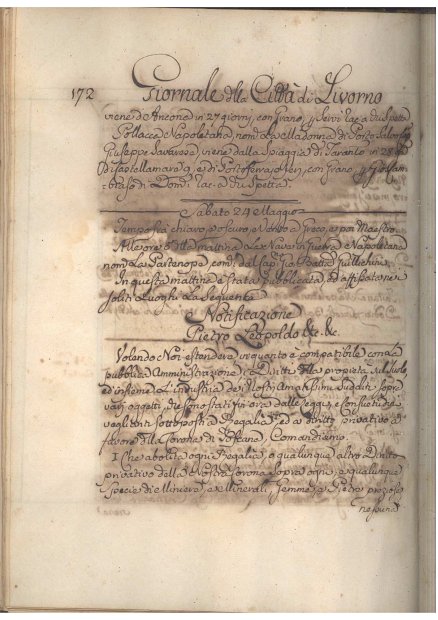 172
Giornale della Città di Livorno
viene d'Ancona in 27 giorni, con Grano, p Servi lac a du Spetta
Pollacca Napoletana, nom. La Madonna di Porto Salvo
Giuseppe Savarese, viene dalla Spiaggia di Taranto in 28
di Castellamara 9, e di Portoferrajo jeri, con Grano, p
di Dom. lac a du Spetta.
Sabato 24 Maggio
Tempo fra chiaro, e oscuro, e Vento a Greco, e poi Maestro.
Alle ore 6 della mattina La Nave Napoletana
nom. La Partenope com. dal Cap.
In questa mattina è stata pubblicata ed affissata nei
soliti Luoghi La Seguente
Notificazione
Pietro Leopoldo &c. &c.
Volendo Noi estendere in quanto è compatibile con la
pubblica Amministrazione i Diritti della proprietà sul Suolo,
ed insieme L'industria dei Nostri Amatissimi Sudditi sopra
varj oggetti, che sono stati fin ora dalle Leggi, e Consuetudini
veglianti sottoposti a Regalia, ed a diritto privativo a
favore della Corona di Toscana, Comandiamo.
I. Che abolita ogni Regalia, o qualunque altro Diritto
privativo della Nostra Corona sopra ogni, e qualunque
specie di Miniera, e Minerali, Gemme, e Pietre preziose